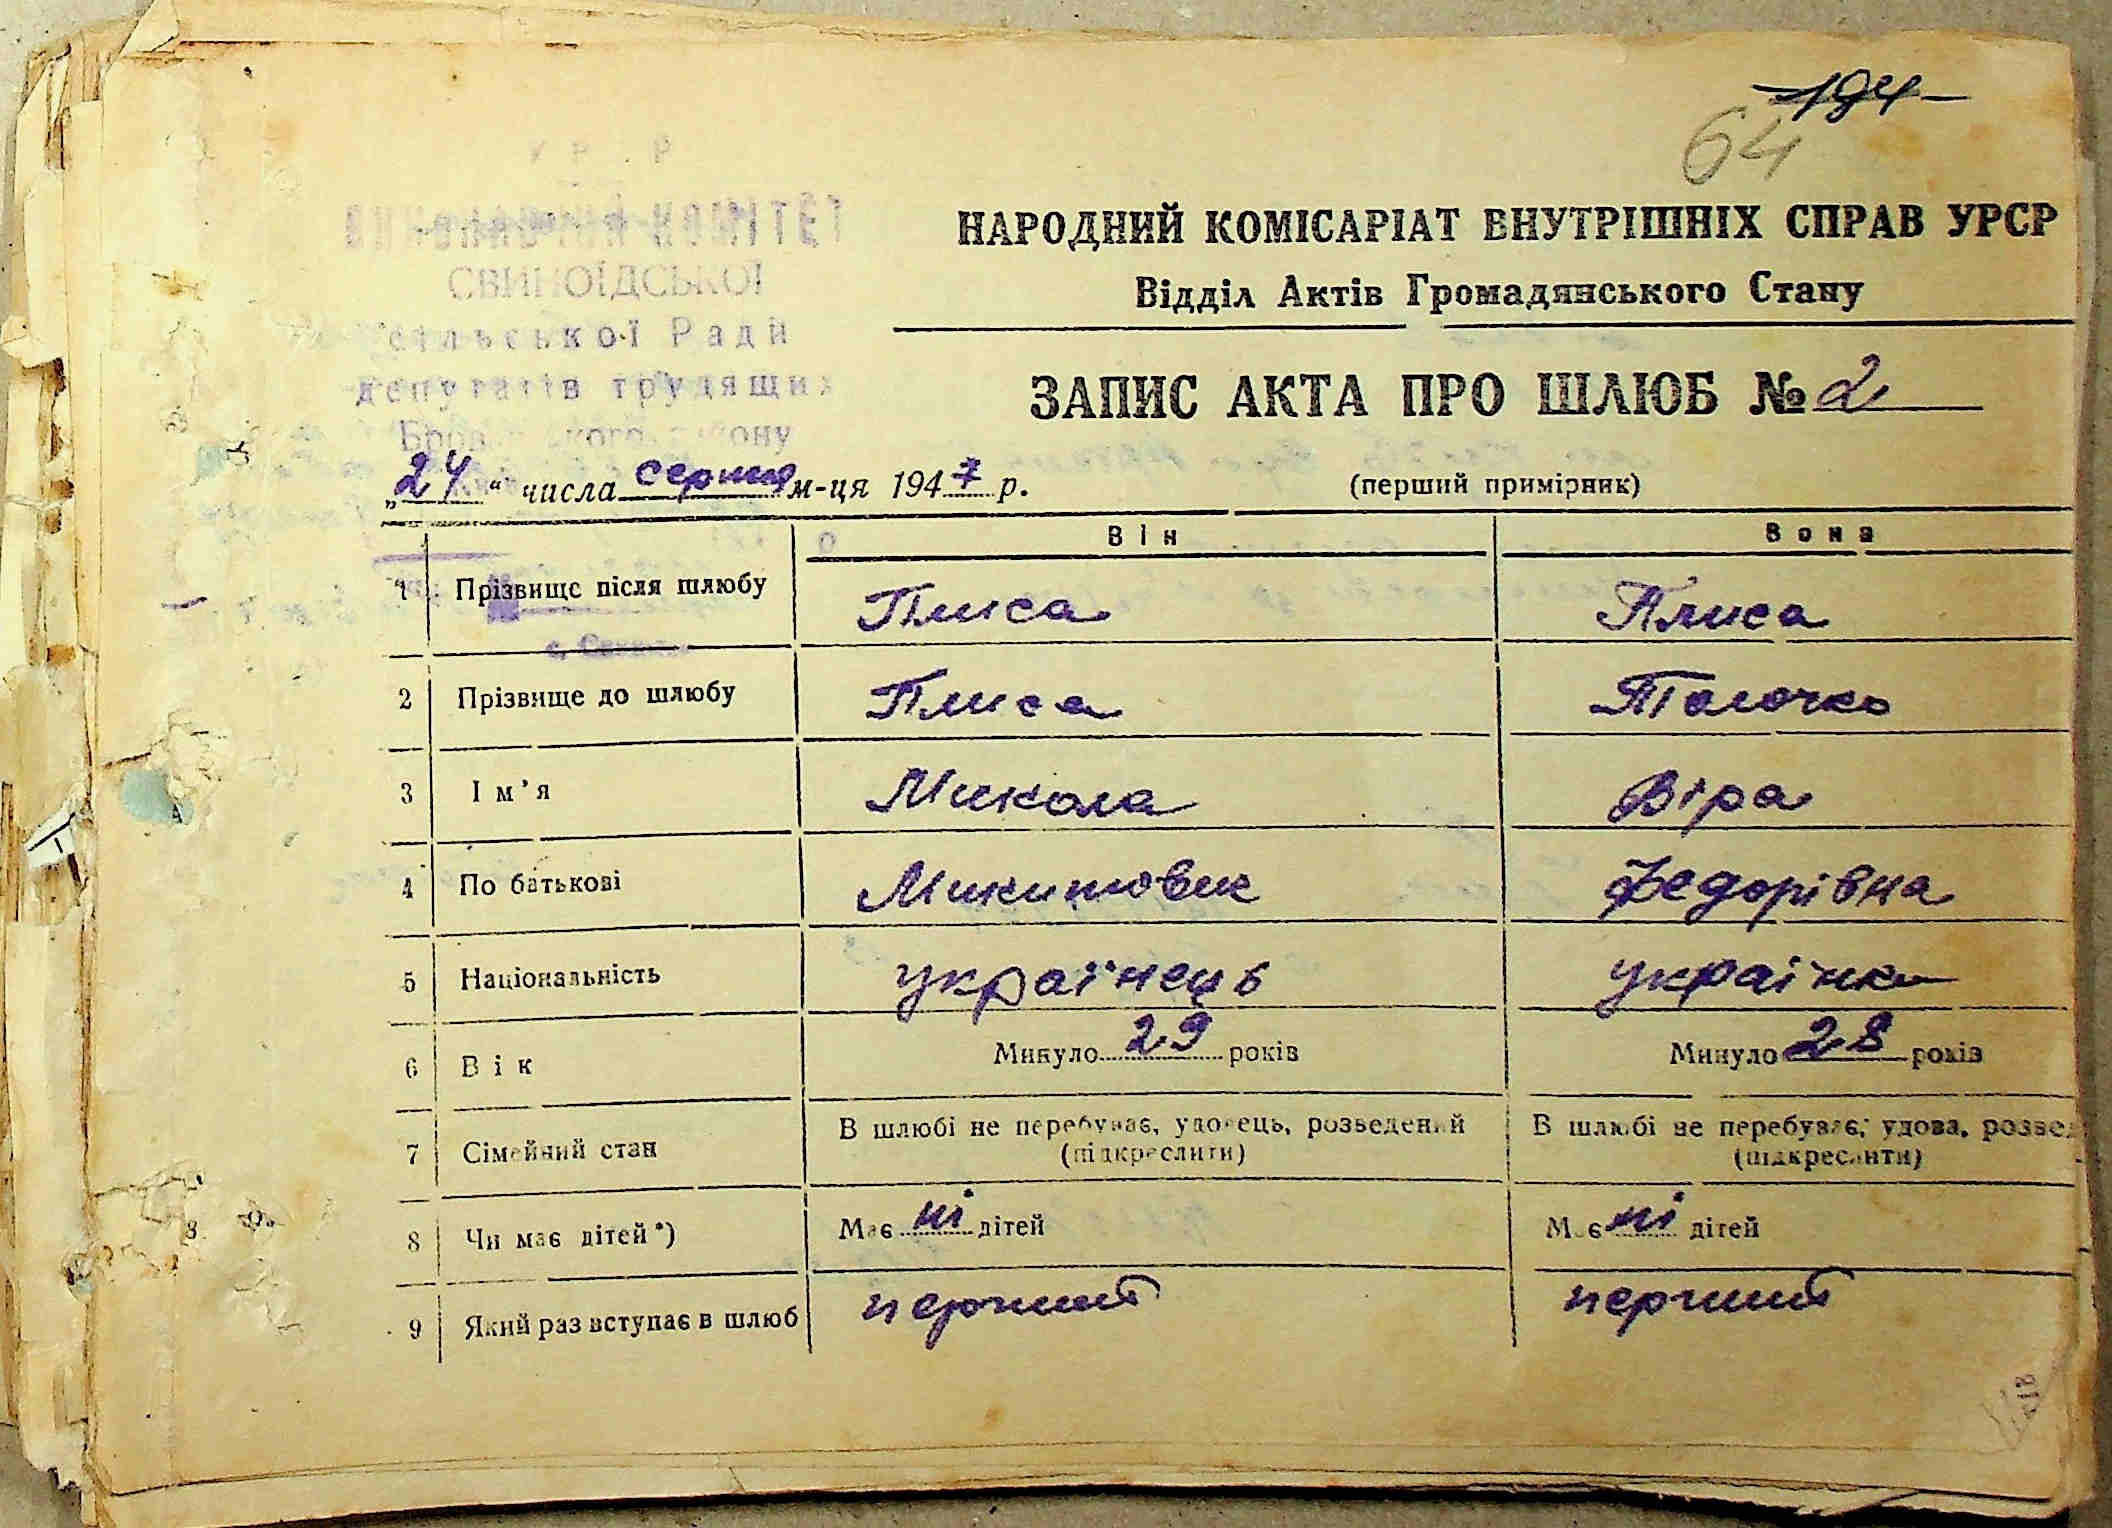 194
64
КОМІТЕТ
СВИНОЇДСЬКОЇ
сільської Ради
депутатів трудящих
НАРОДНИЙ КОМІСАРІАТ ВНУТРІШНІХ СПРАВ УРСР
Відділ Актів Громадянського Стану
ЗАПИС АКТА ПРО ШЛЮБ № 2
„24“ числа серпня м-ця 1947 р. (перший примірник)
Він Вона
1 Прізвище після шлюбу Плиса Плиса
2 Прізвище до шлюбу Плиса Толочко
3 Ім’я Микола Віра
4 По батькові Микитович Федорівна
5 Національність українець українка
6 Вік Минуло 29 років Минуло 28 років
7 Сімейний стан В шлюбі не перебуває, удовець, розведений В шлюбі не перебуває, удова, розве
(підкреслити) (підкреслити)
8 Чи має дітей*) Має ні дітей Має ні дітей
9 Який раз вступає в шлюб перший перший